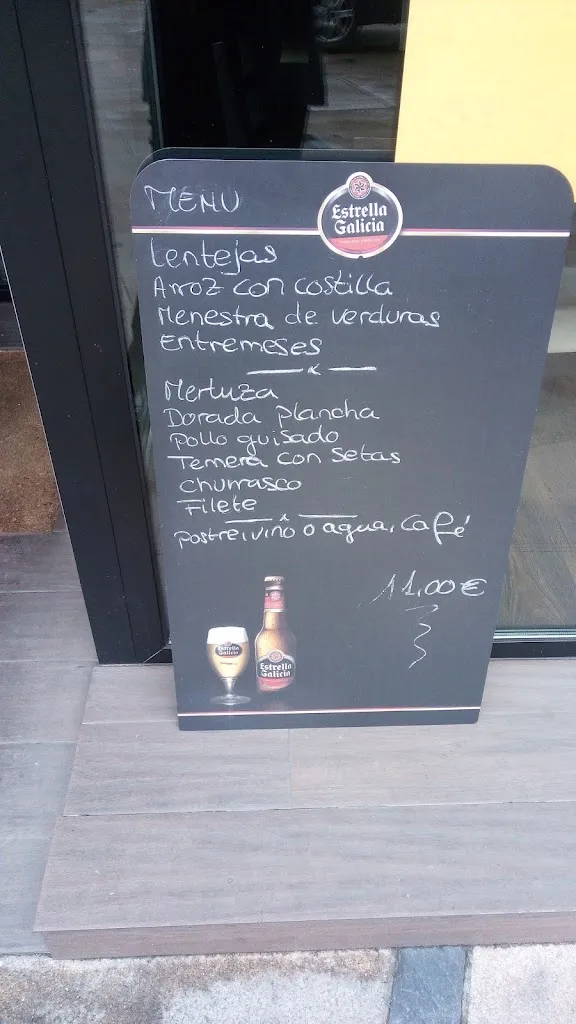 MENU
Estrella
Galicia
Lentejas
Arroz con costilla
Menestra de verduras
Entremeses
Merluza
Dorada plancha
pollo guisado
Ternera con setas
churrasco
Filete
postre, vino o agua, café
11,00€
Estrella
Galicia